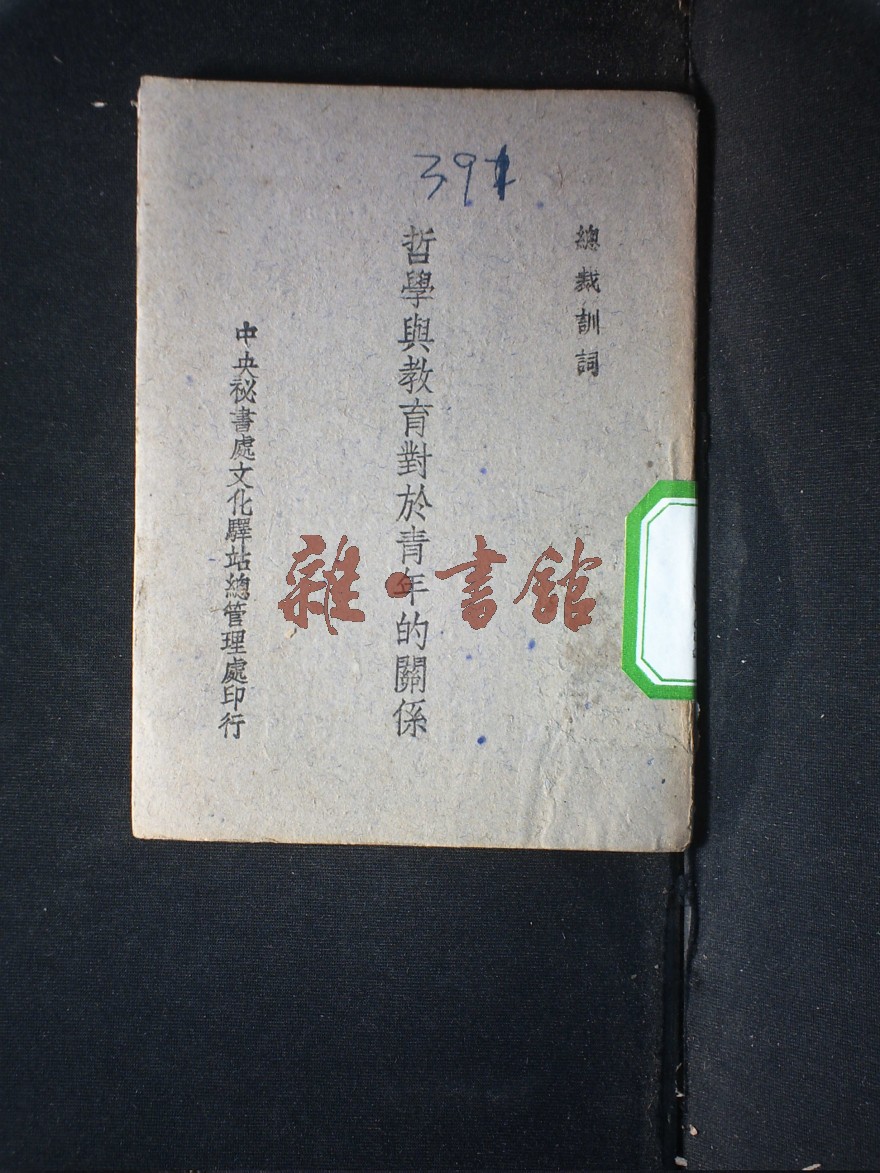 391
總裁訓詞
哲學與教育對於青年的關係
中央祕書處文化驛站總管理處印行
雜·書館